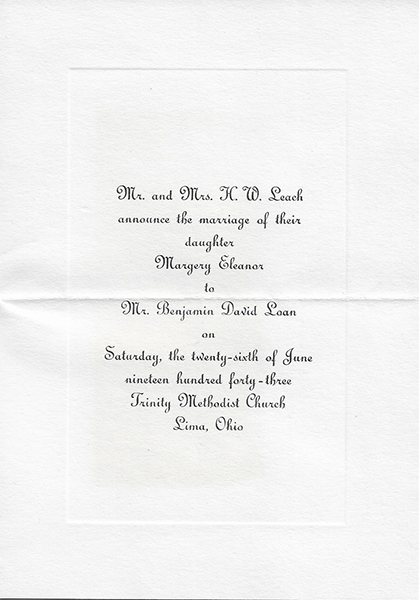 Mr. and Mrs. H. W. Leach
announce the marriage of their
daughter
Margery Eleanor
to
Mr. Benjamin David Loan
on
Saturday, the twenty-sixth of June
nineteen hundred forty-three
Trinity Methodist Church
Lima, Ohio